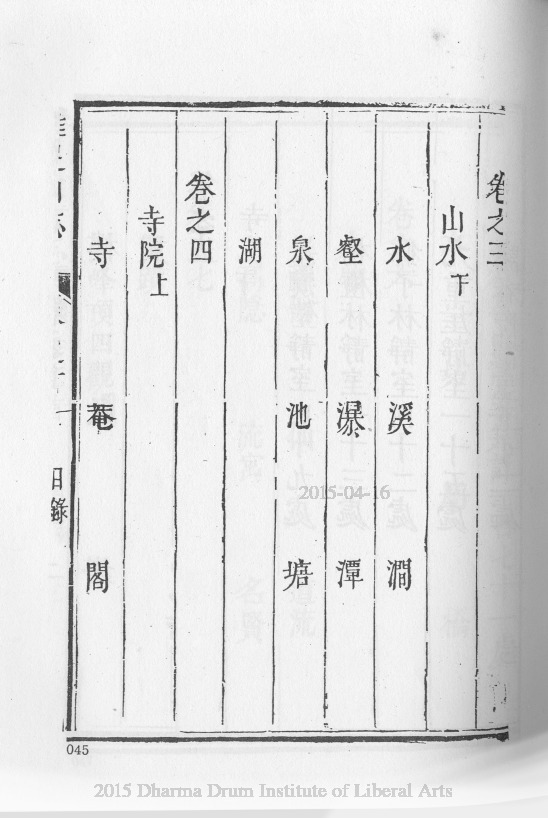 卷之三
山水下
水 溪 澗
壑 瀑 潭
泉 池 塘
湖
卷之四
寺院上
寺 菴 閣
目錄
2015-04-16
045
2015 Dharma Drum Institute of Liberal Arts